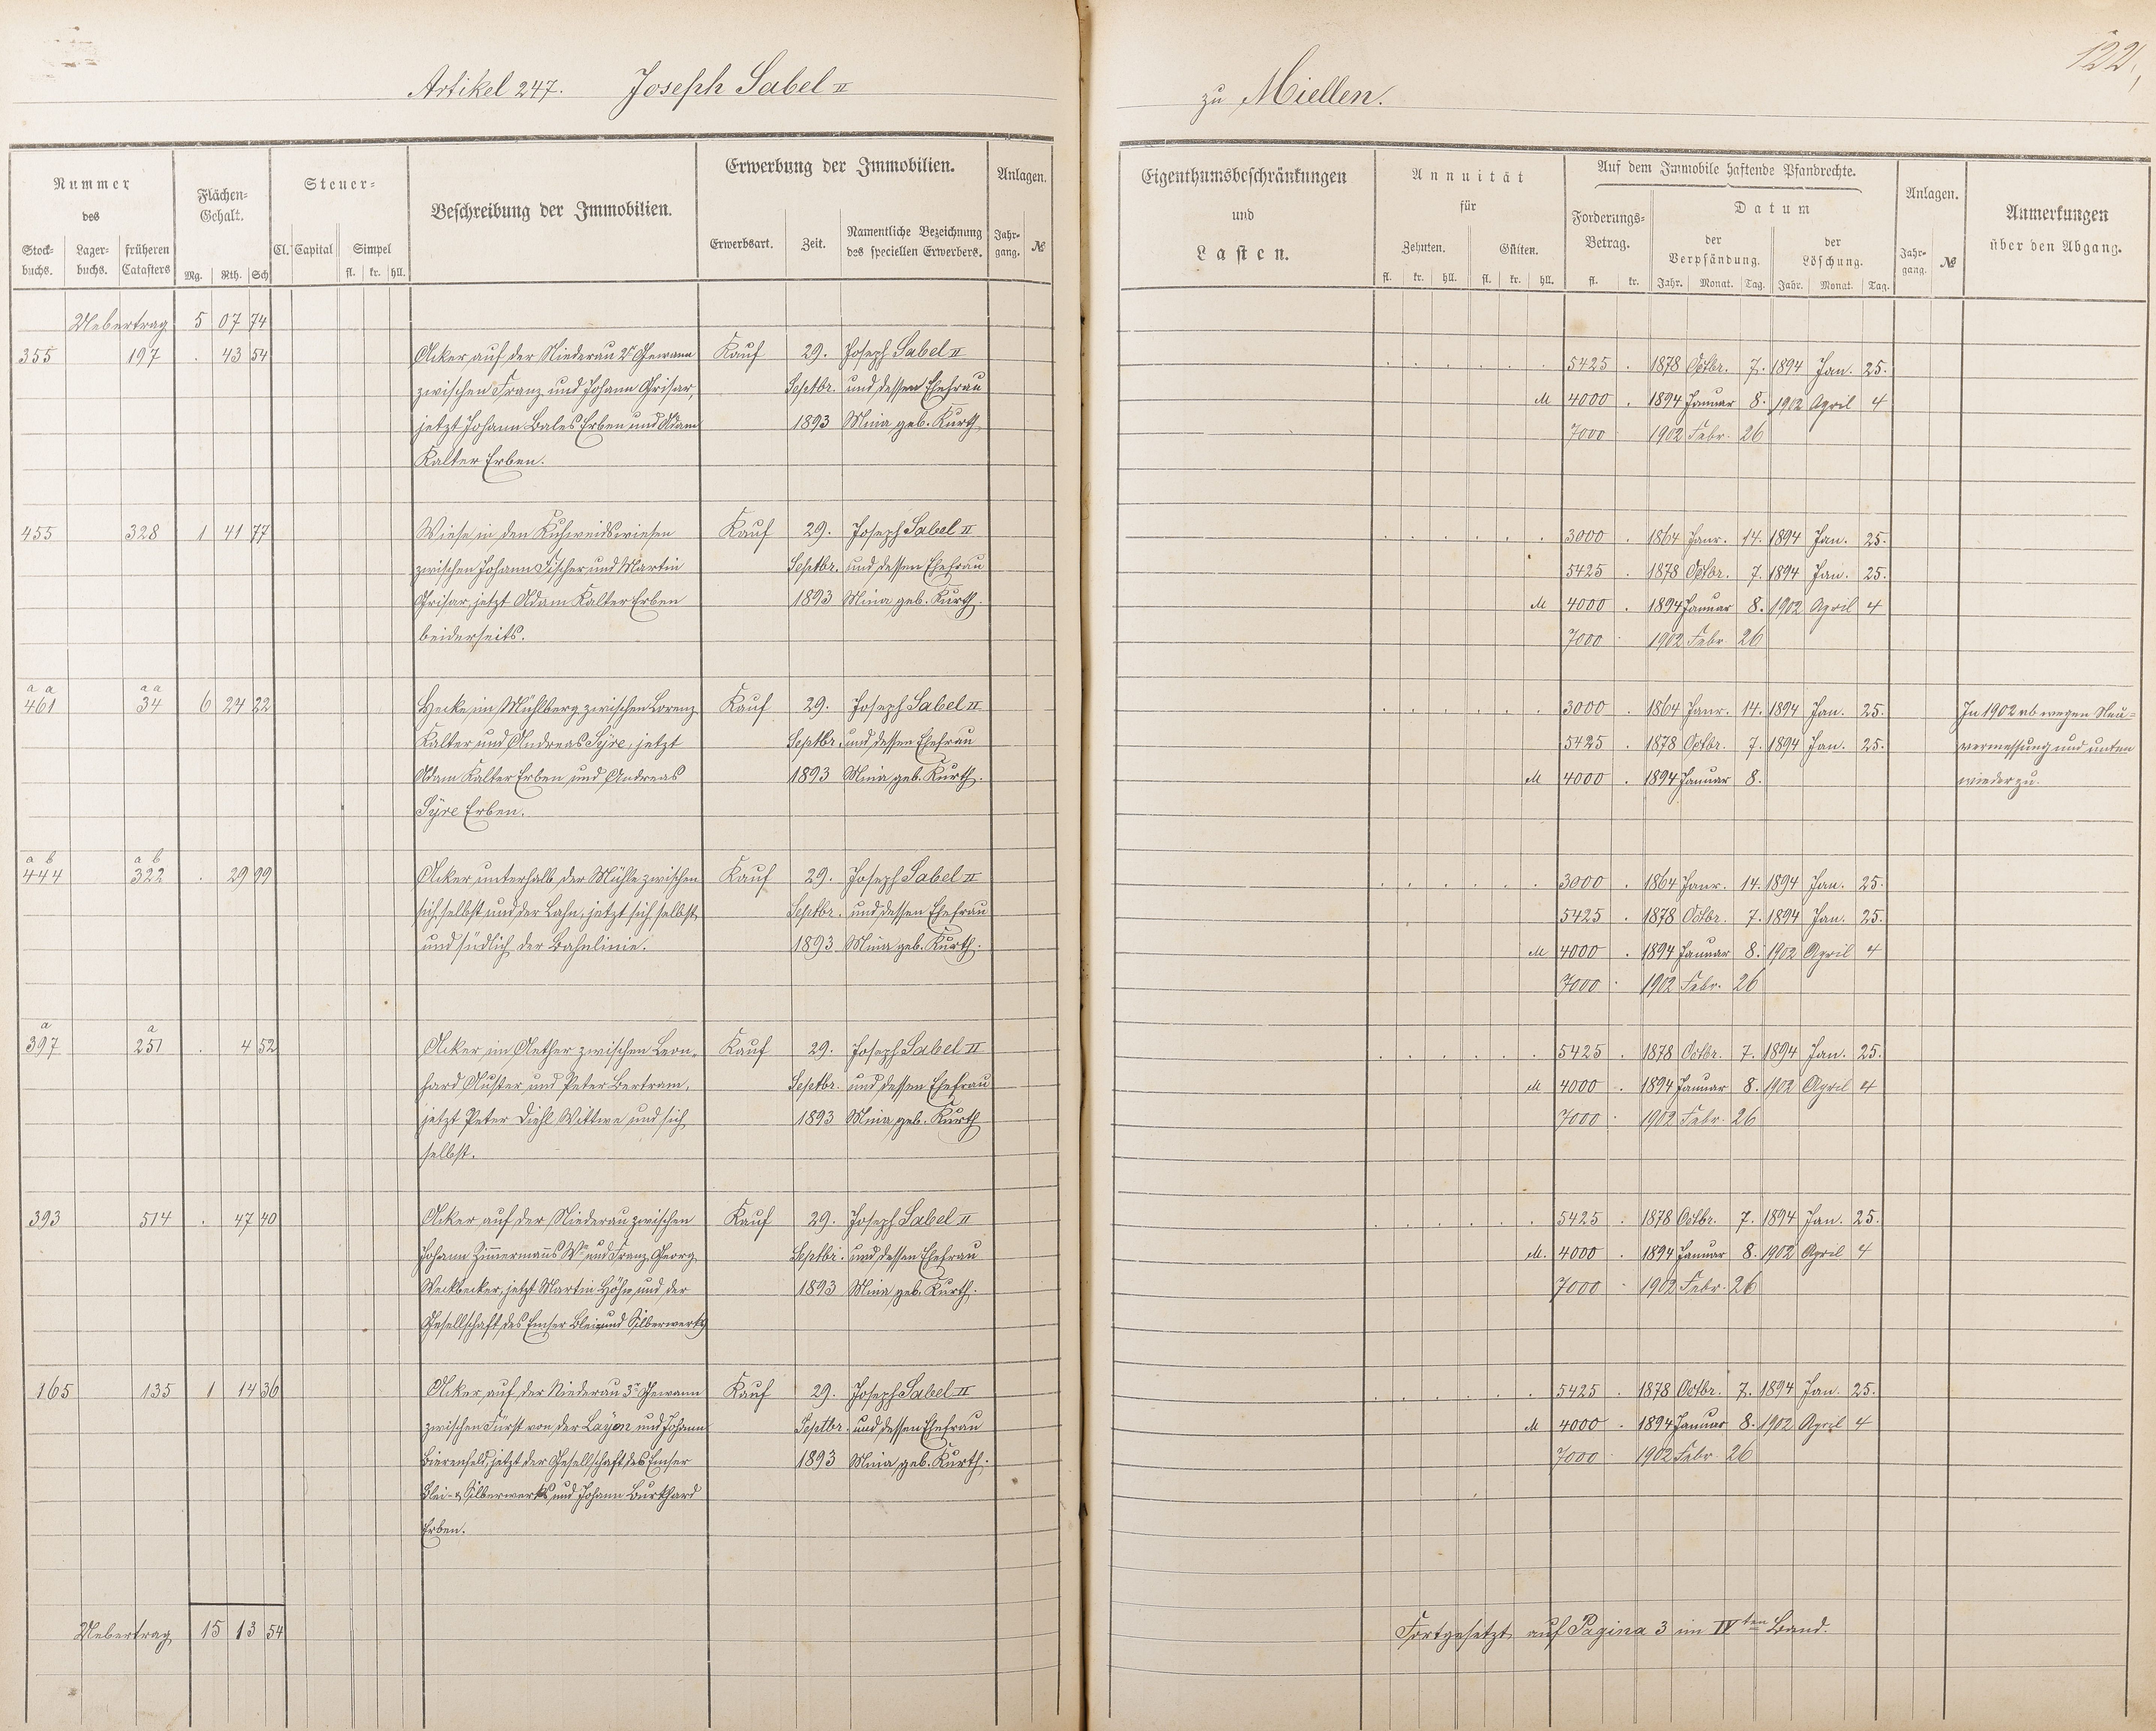 122.
Artikel 247. Joseph Sabel II zu Miellen.
Nummer des
Stock- buchs. Lager- buchs. früheren Catasters
Flächen- Gehalt.
Mg. Rth. Sch.
Steuer-
Cl. Capital Simpel
fl. kr. hll.
Beschreibung der Immobilien.
Erwerbung der Immobilien.
Erwerbsart. Zeit. Namentliche Bezeichnung des speciellen Erwerbers.
Anlagen.
Jahr- gang. №
Eigenthumsbeschränkungen
und
Lasten.
Annuität
für
Zehnten. Gülten.
fl. kr. hll. fl. kr. hll.
Auf dem Immobile haftende Pfandrechte.
Forderungs- Betrag.
fl. kr.
Datum
der Verpfändung. der Löschung.
Jahr. Monat. Tag. Jahr. Monat. Tag.
Anlagen.
Jahr- gang. №
Anmerkungen
über den Abgang.
Uebertrag 5 07 74
355 197 . 43 54 Acker auf der Niederau 2r Gewann Kauf 29. Joseph Sabel II 5425 . 1878 Octbr. 7. 1894 Jan. 25.
zwischen Franz und Johann Grisar, Septbr. und dessen Ehefrau M 4000 . 1894 Januar 8. 1902 April 4
jetzt Johann Bales Erben und Adam 1893 Mina geb. Kurth 7000 . 1902 Febr. 26
Kalter Erben.
455 328 1 41 77 Wiese in den Kuhweidswiesen Kauf 29. Joseph Sabel II 3000 . 1864 Janr. 14. 1894 Jan. 25.
zwischen Johann Fischer und Martin Septbr. und dessen Ehefrau 5425 . 1878 Octbr. 7. 1894 Jan. 25.
Grisar, jetzt Adam Kalter Erben 1893 Mina geb. Kurth. M 4000 . 1894 Januar 8. 1902 April 4
beiderseits. 7000 . 1902 Febr. 26
a a a a
461 34 6 24 22 Hecke im Mühlberg zwischen Lorenz Kauf 29. Joseph Sabel II 3000 . 1864 Janr. 14. 1894 Jan. 25. In 1902 ab wegen Neu-
Kalter und Andreas Syre, jetzt Septbr. und dessen Ehefrau 5425 . 1878 Octbr. 7. 1894 Jan. 25. vermessung und unten
Adam Kalter Erben und Andreas 1893 Mina geb. Kurth. M 4000 . 1894 Januar 8. wieder zu.
Syre Erben.
a b a b
444 322 . 29 99 Acker unterhalb der Mühle zwischen Kauf 29. Joseph Sabel II 3000 . 1864 Janr. 14. 1894 Jan. 25.
sich selbst und der Lahn, jetzt sich selbst Septbr. und dessen Ehefrau 5425 . 1878 Octbr. 7. 1894 Jan. 25.
und südlich der Bahnlinie. 1893 Mina geb. Kurth. M 4000 . 1894 Januar 8. 1902 April 4
7000 . 1902 Febr. 26
a a
397 251 . 4 52 Acker im Aether zwischen Leon- Kauf 29. Joseph Sabel II 5425 . 1878 Octbr. 7. 1894 Jan. 25.
hard Auster und Peter Bertram, Septbr. und dessen Ehefrau M 4000 . 1894 Januar 8. 1902 April 4
jetzt Peter Diehl Wittwe und sich 1893 Mina geb. Kurth 7000 . 1902 Febr. 26
selbst.
393 514 . 47 40 Acker auf der Niederau zwischen Kauf 29. Joseph Sabel II 5425 . 1878 Octbr. 7. 1894 Jan. 25.
Johann Zimmermanns We und Franz Georg Septbr. und dessen Ehefrau M. 4000 . 1894 Januar 8. 1902 April 4
Weckbecker, jetzt Martin Höhn und der 1893 Mina geb. Kurth. 7000 . 1902 Febr. 26
Gesellschaft des Emser Blei und Silberwerks
165 135 1 14 36 Acker auf der Niederau 3r Gewann Kauf 29. Joseph Sabel II 5425 . 1878 Octbr. 7. 1894 Jan. 25.
zwischen Fürst von der Layen und Johann Septbr. und dessen Ehefrau M 4000 . 1894 Januar 8. 1902 April 4
Bierenfeld, jetzt der Gesellschaft des Emser 1893 Mina geb. Kurth. 7000 . 1902 Febr. 26
Blei- & Silberwerks und Johann Burkhard
Erben.
Uebertrag 15 13 54 Fortgesetzt auf Pagina 3 im IVten Band.